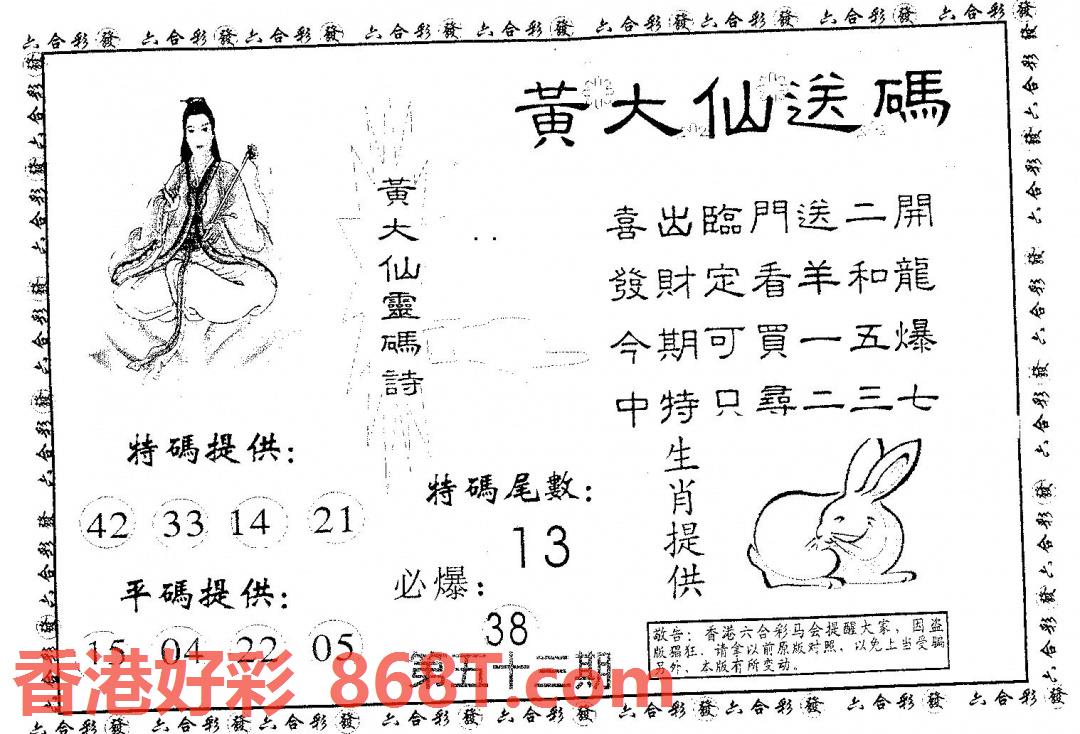 六合彩發 六合彩發六合彩發 六合彩發 六合彩發 六合彩發 六合彩發 六合彩發
黃大仙送碼
黃大仙靈碼詩
喜出臨門送二開
發財定看羊和龍
今期可買一五爆
中特只尋二三七
特碼提供：
42 33 14 21
特碼尾數：
13
生肖提供
平碼提供：
15 04 22 05
必爆：
38
第五十三期
敬告：香港六合彩马会提醒大家，因盗
版猖狂，请拿以前原版对照，以免上当受骗
另外，本版有所变动。
香港好彩 868T.com
六合彩發 六合彩發 六合彩發 六合彩發 六合彩發 六合彩發 六合彩發 六合彩發